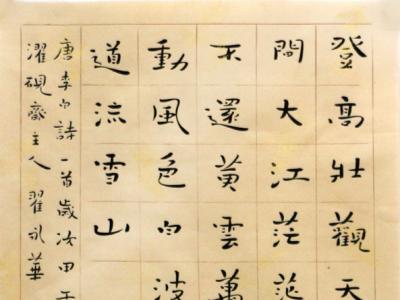 登高壯觀天
間大江茫茫
不還黃雲萬
動風色白波
道流雪山
唐李白詩一首歲次甲
濯硯齋主人翟
華